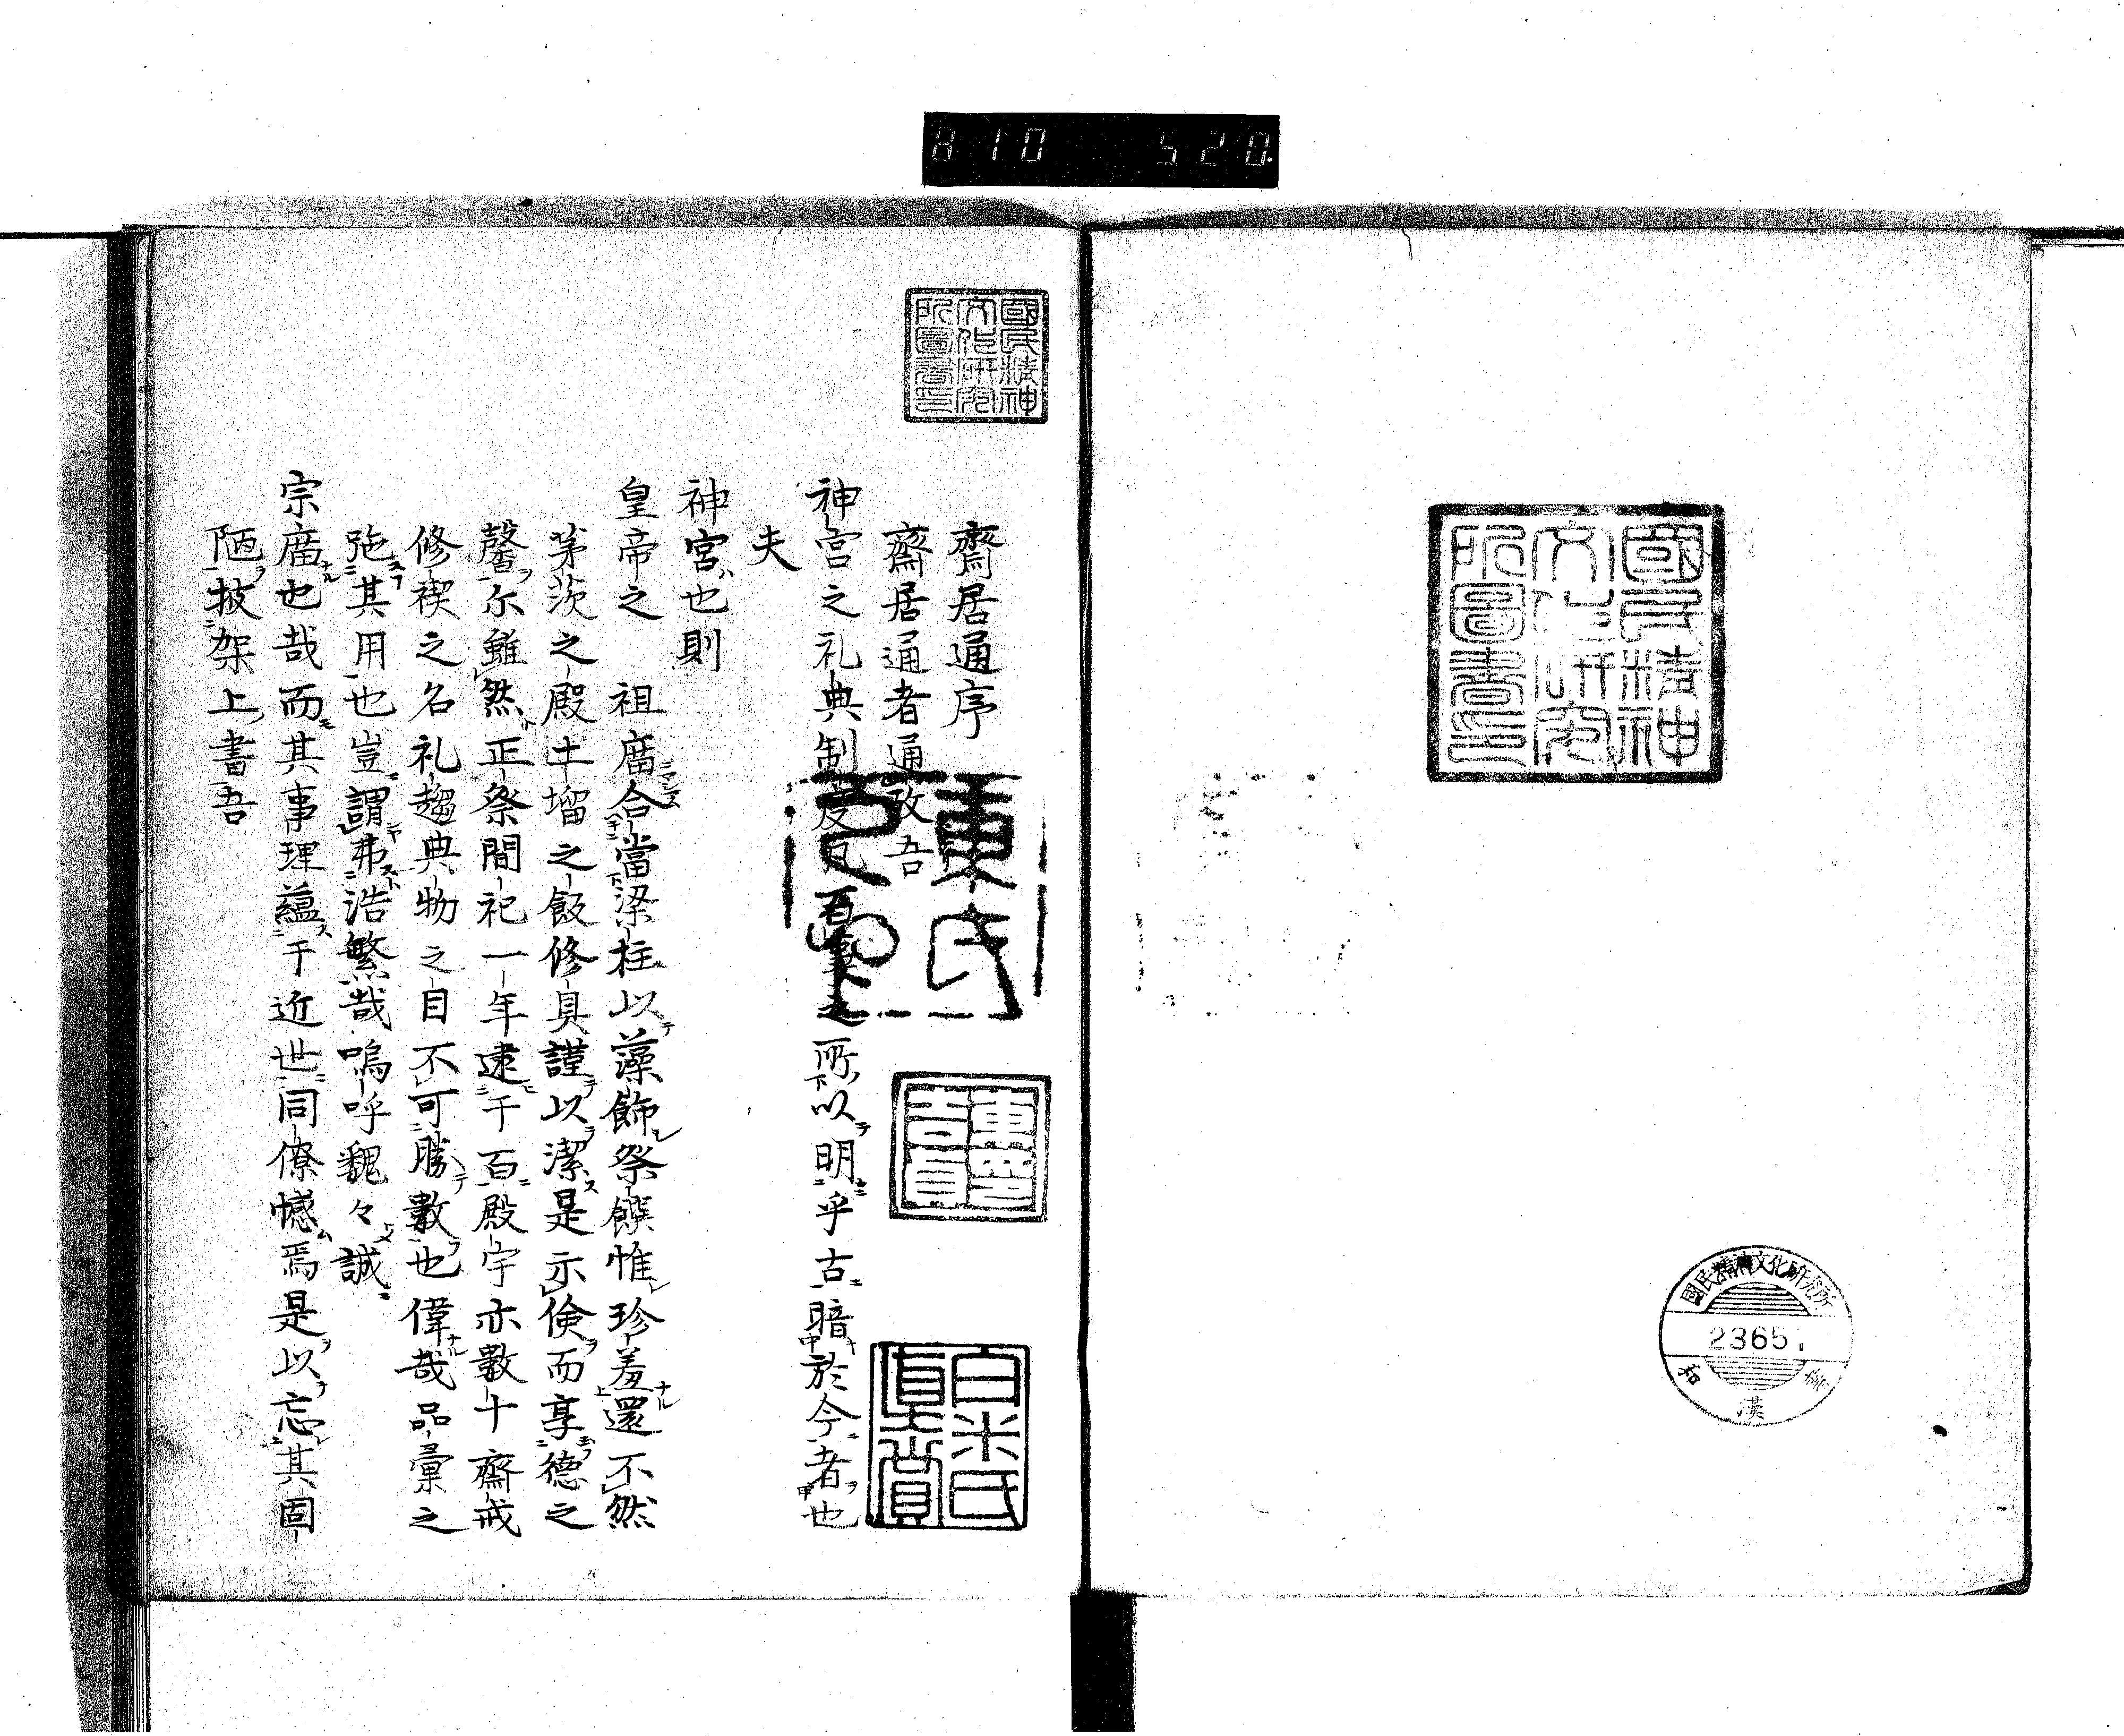 810 520.
國民精神
文化研究
所圖書印
國民精神文化研究所
2365
和 漢 書
國民精神
文化研究
所圖書印
白米氏
齋居通序
齋居通者通攷吾
神宮之礼典制度凡百事之所以明乎古暗於今者也
夫
神宮也則
皇帝之 祖庿合當梁柱以藻飾祭饌惟珍羞還不然
茅茨之殿土塯之飯修具謹以潔是示儉而享德之
馨尓雖然正祭間祀一年逮于百殿宇亦數十齋戒
修禊之名礼趨典物之目不可勝數也偉哉品彙之
孢其用也豈謂弗浩繁哉嗚呼魏々誠
宗廣也哉而其事理蘊于近世同僚憾焉是以忘其固
陋披架上書吾